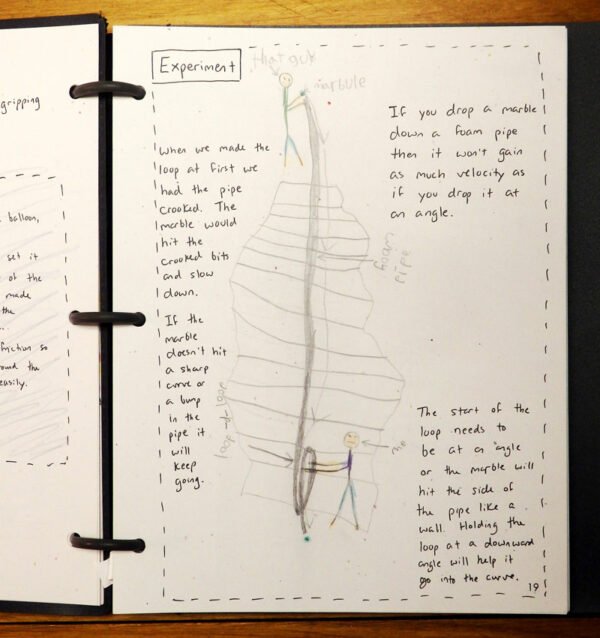 gripping
balloon,
set it
of the
made
the
friction so
ound the
easily.
Experiment
that guy
marbule
When we made the
loop at first we
had the pipe
crooked. The
marble would
hit the
crooked bits
and slow
down.
If the
marble
doesn't hit
a sharp
curve or
a bump
in the
pipe it
will
keep
going.
If you drop a marble
down a foam pipe
then it won't gain
as much velocity as
if you drop it at
an angle.
foam
pipe
loop-t-loop
me
The start of the
loop needs to
be at an angle
or the marble will
hit the side of
the pipe like a
wall. Holding the
loop at a downward
angle will help it
go into the curve.
19